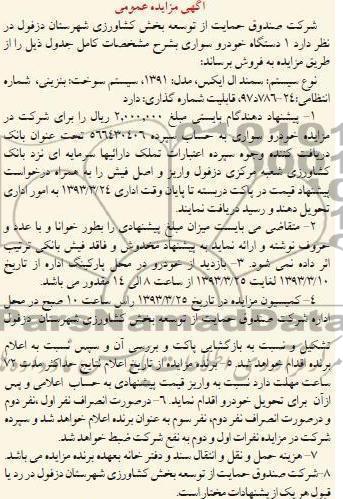 آگهی مزایده عمومی
شرکت صندوق حمایت از توسعه بخش کشاورزی شهرستان دزفول در
نظر دارد ۱ دستگاه خودرو سواری بشرح مشخصات کامل جدول ذیل را از
طریق مزایده به فروش برساند:
نوع سیستم: سمند ال ایکس، مدل: ۱۳۹۱، سیستم سوخت: بنزینی، شماره
انتظامی: ۲۴-۷۸۶د۹۷، قابلیت شماره گذاری: دارد
۱- پیشنهاد دهندگام بایستی مبلغ ۲,۰۰۰,۰۰۰ ریال را برای شرکت در
مزایده خودرو سواری به حساب سپرده ۵۶۶۴۳۰۴۰۶ تحت عنوان بانک
دریافت کننده وجوه سپرده اعتبارات تملک دارائیها سرمایه ای نزد بانک
کشاورزی شعبه مرکزی دزفول واریز و اصل فیش را به همراه درخواست
پیشنهاد قیمت در پاکت دربسته تا پایان وقت اداری ۱۳۹۳/۳/۲۴ به امور اداری
تحویل دهند و رسید دریافت نمایند.
۲- متقاضی می بایست میزان مبلغ پیشنهادی را بطور خوانا و با عدد و
حروف نوشته و ارائه نماید به پیشنهاد مخدوش و فاقد فیش بانکی ترتیب
اثر داده نمی شود. ۳- بازدید از خودرو در محل پارکینگ اداره از تاریخ
۱۳۹۳/۳/۱۰ لغایت ۱۳۹۳/۳/۲۵ از ساعت ۸ الی ۱۴ مقدور می باشد.
۴- کمیسیون مزایده در تاریخ ۱۳۹۳/۳/۲۵ راس ساعت ۱۰ صبح در محل
اداره شرکت صندوق حمایت از توسعه بخش کشاورزی شهرستان دزفول
تشکیل و نسبت به بازگشایی پاکت و بررسی آن و سپس نسبت به اعلام
برنده اقدام خواهد شد. ۵- برنده مزایده از تاریخ اعلام نتایج حداکثر مدت ۷۲
ساعت مهلت دارد نسبت به واریز قیمت پیشنهادی به حساب اعلامی و پس
ازآن برای تحویل خودرو اقدام نماید. ۶- درصورت انصراف نفر اول، نفر دوم
و درصورت انصراف نفر دوم، نفر سوم به عنوان برنده اعلام خواهد شد و سپرده
شرکت در مزایده نفرات اول و دوم به نفع شرکت ضبط خواهد شد.
۷- هزینه حمل و نقل و انتقال سند و دفتر خانه بعهده برنده مزایده می باشد.
۸- شرکت صندوق حمایت از توسعه بخش کشاورزی شهرستان دزفول در رد یا
قبول هر یک از پشنهادات مختار است.
ParsNamadData